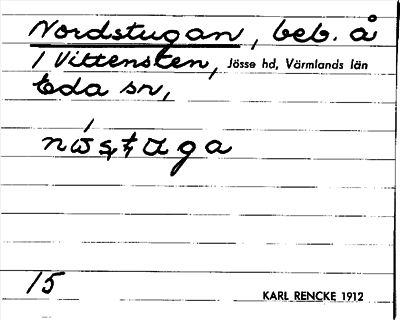 Nordstugan, beb. å
1 Vittensten, Jösse hd, Värmlands län
Eda sn,
nώs̨t̨ʉga
15
KARL RENCKE 1912